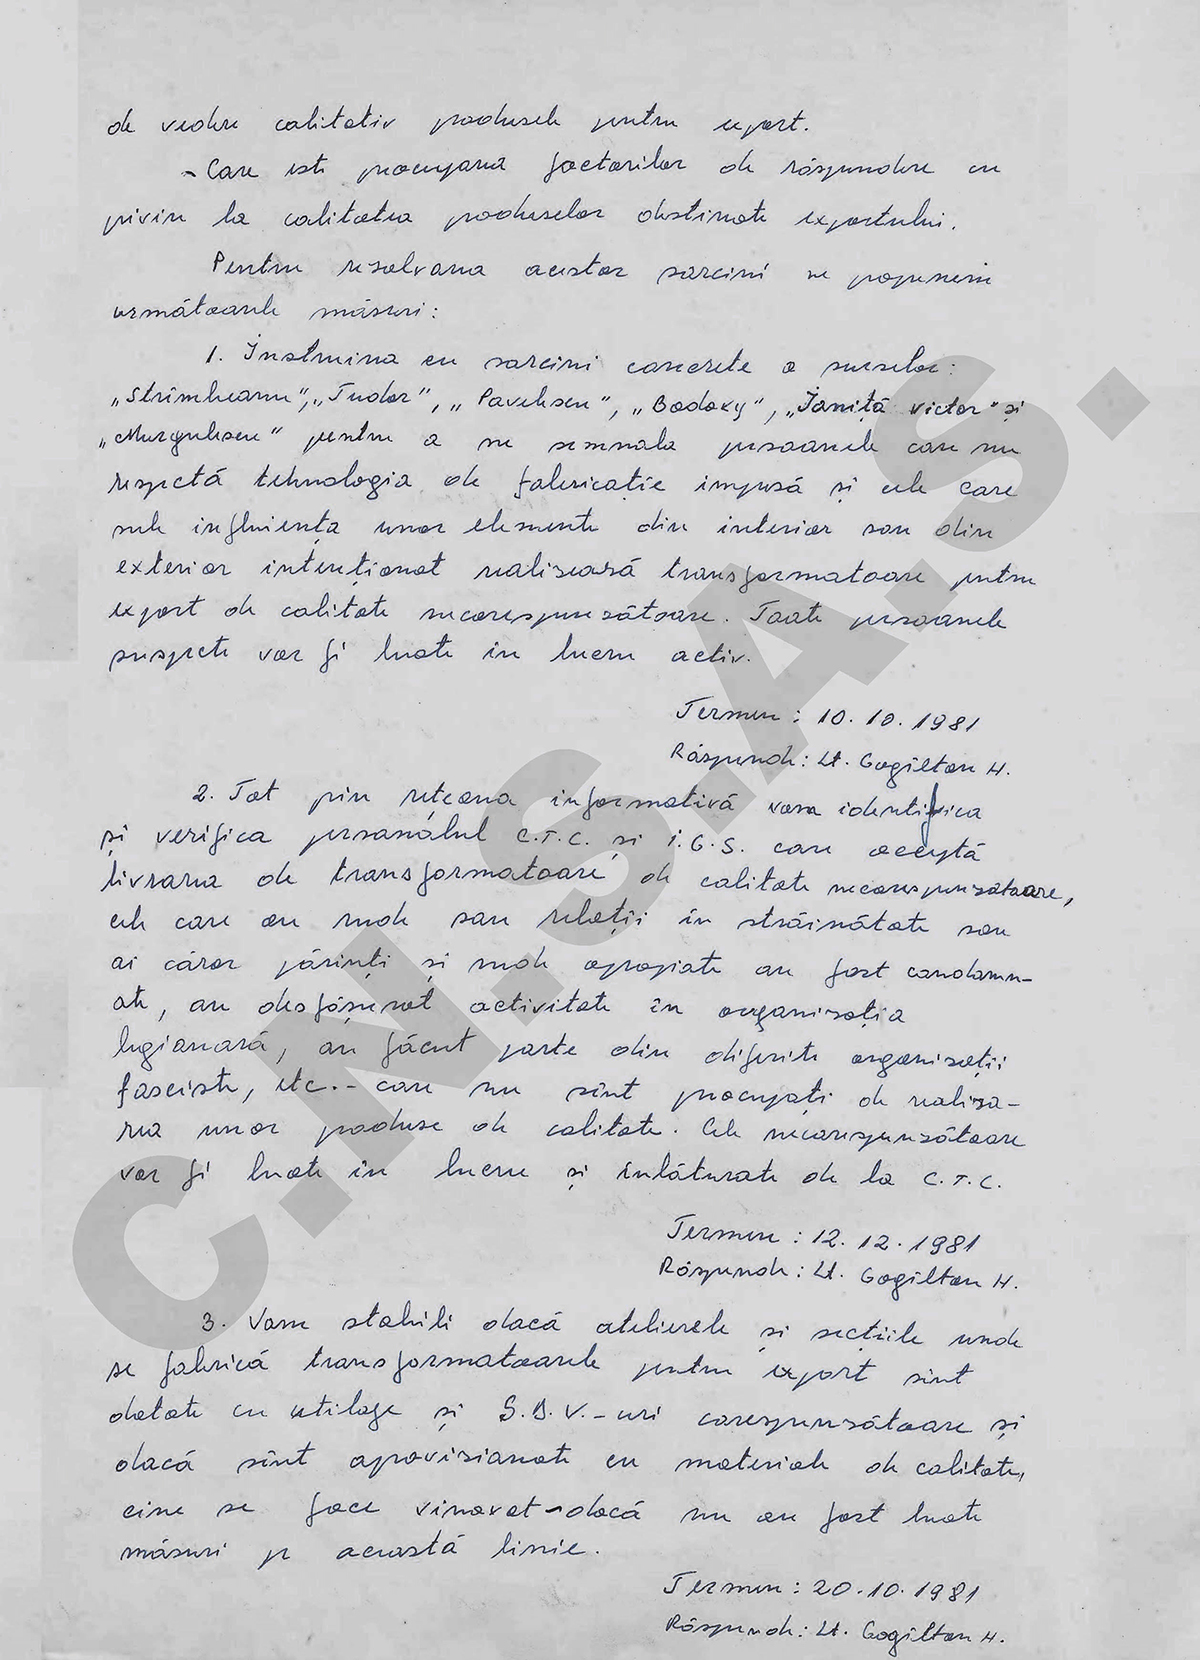 de vedere calitativ produsele pentru export.
- Care este preocuparea factorilor de răspundere cu
privire la calitatea produselor destinate exportului.
Pentru rezolvarea acestor sarcini ne propunem
următoarele măsuri:
1. Instruirea cu sarcini concrete a surselor:
„Strîmbeanu”, „Tudor”, „Pavelescu”, „Bodoky”, „Ioniță Victor” și
„Murgulescu” pentru a ne semnala persoanele care nu
respectă tehnologia de fabricație impusă și cele care
sub influiența unor elemente din interior sau din
exterior intenționat realizează transformatoare pentru
export de calitate necorespunzătoare. Toate persoanele
suspecte vor fi luate în lucru activ.
Termen: 10.10.1981
Răspunde: Lt. Gogîltan H.
2. Tot prin rețeaua informativă vom identifica
și verifica personalul C.T.C. și I.G.S. care acceptă
livrarea de transformatoare de calitate necorespunzătoare,
cele care au rude sau relații în străinătate sau
ai căror părinți și rude apropiate au fost condamn-
ate, au desfășurat activitate în organizația
legionară, au făcut parte din diferite organizații
fasciste, etc.- care nu sînt preocupați de realiza-
rea unor produse de calitate. Cele necorespunzătoare
vor fi luate în lucru și înlăturate de la C.T.C.
Termen: 12.12.1981
Răspunde: Lt. Gogîltan H.
3. Vom stabili dacă atelierele și secțiile unde
se fabrică transformatoarele pentru export sînt
dotate cu utilaje și S.D.V.-uri corespunzătoare și
dacă sînt aprovizionate cu materiale de calitate,
cine se face vinovat - dacă nu au fost luate
măsuri pe această linie.
Termen: 20.10.1981
Răspunde: Lt. Gogîltan H.
C.N.S.A.S.